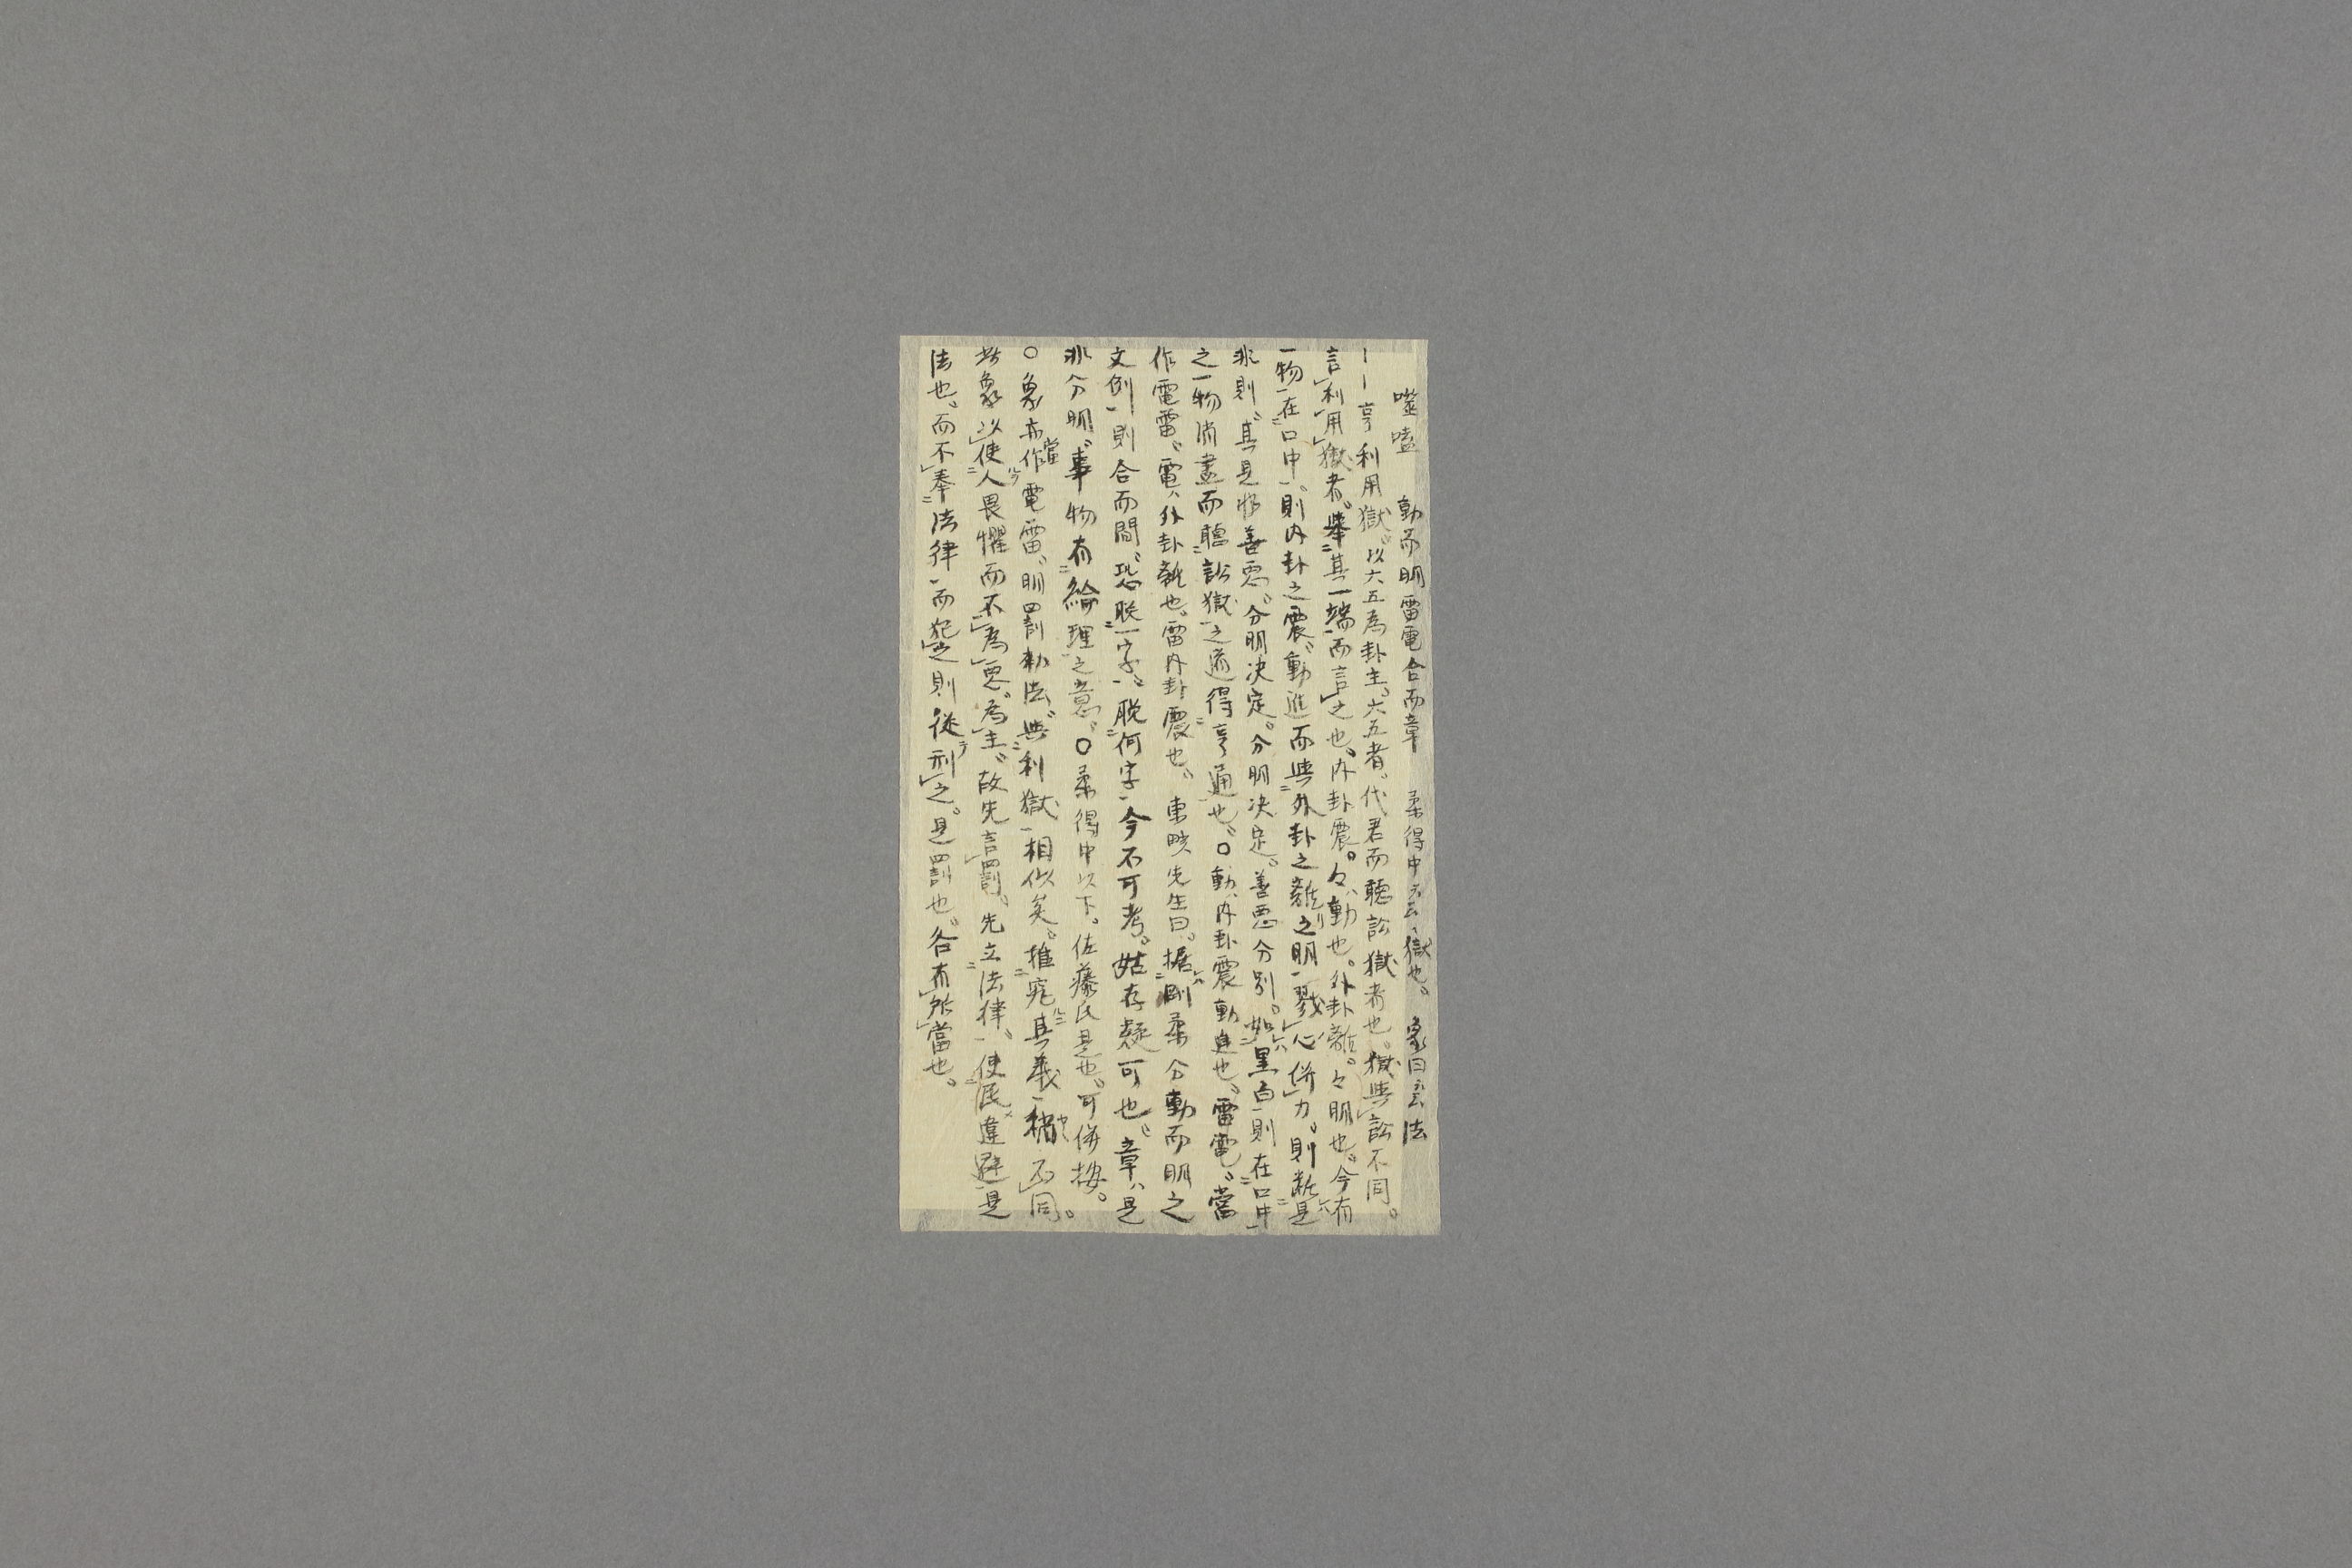 噬嗑　動而明雷電合而章　柔得中云云獄也。象曰云云法
｜｜亨利用獄。以六五為卦主。六五者。代君而聽訟獄者也。獄與訟不同。
言利用獄者。舉其一端而言之也。内卦震。々、動也。外卦離。々明也。今有
一物在口中。則内卦之震。動進而與外卦之離之明戮心併力。則斷是
非則。其是非善惡。分明決定。分明決定。善惡分別。如黑白則在口中
之一物消盡而聽訟獄之道得亨通也。○動、内卦震動進也。雷電。當
作電雷。電、外卦離也。雷内卦震也。東畡先生曰。據剛柔分動而明之
文例則合而間。恐脫一字。脫何字今不可考。姑存疑可也。章、是
非分明。事物有綸理之意。○柔得中以下。佐藤氏是也。可併按。
○象亦當作電雷。明罰勅法。與利獄相似矣。推究其義稍不同。
此象以使人畏懼而不為惡。為主。故先言罰。先立法律。使民違避是
法也。而不奉法律而犯之則從刑之。是罰也。各有所當也。